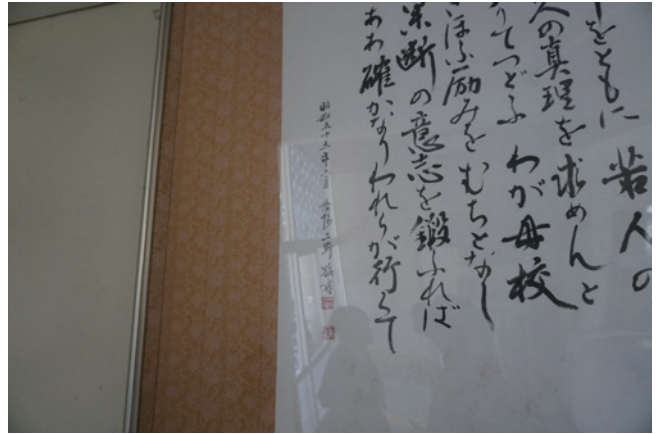 をともに 若人の
人の真理を求めんと
りてつどふ わが母校
ほふ励みを むちとなし
果断の意志を鍛ふれば
ああ確かなりわれらが行くて
昭和五十五年 月 上野